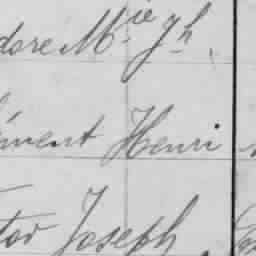 dore M.ie Jh
ément Henri
tor Joseph